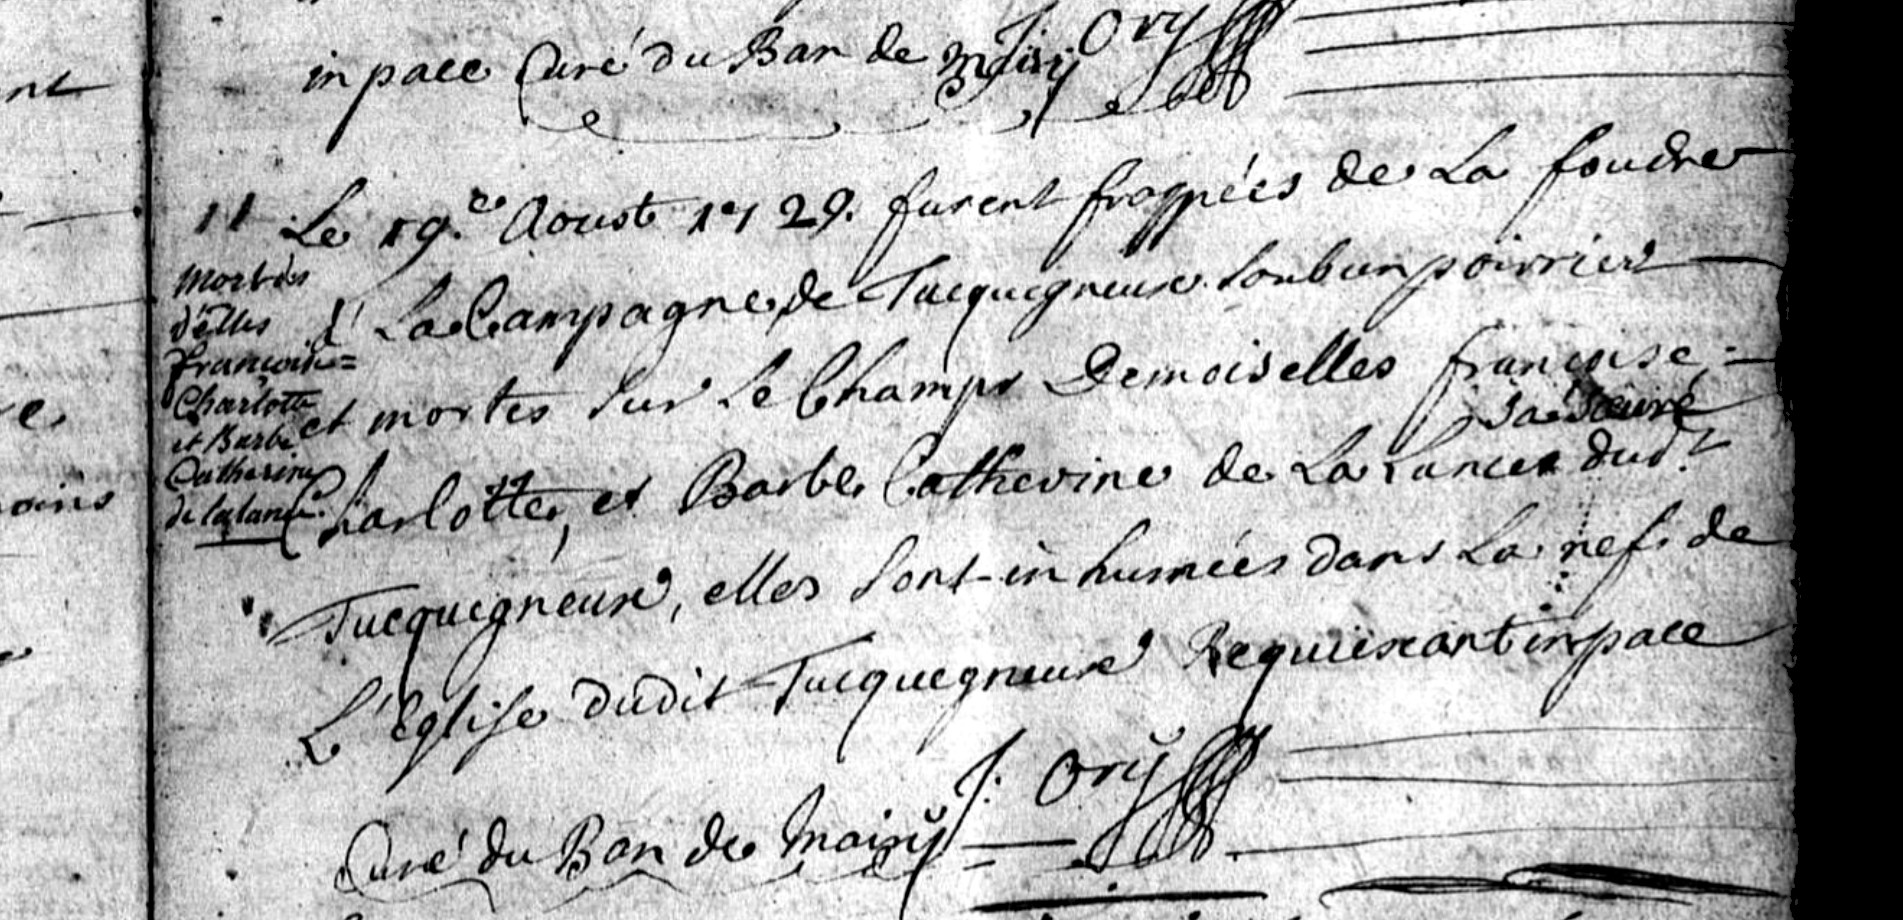 in pace Curé du Ban de Mairy J. Ory
11 Le 19.e Aoust 1729. furent frappées de La foudre
Mortes
d'elles
françoise=
Charlotte
et Barbe
Catherine
de lalance.
à La Campagne de Tucquegneux soub un poirrier
et mortes sur Le Champs Demoiselles françoise=
sa soeure
Charlotte, et Barbe Catherine de La Lance dud.t
Tucquegneux, elles sont inhumées dans La nef de
L'Eglise dudit Tucquegneux Requiescant in pace
J: Ory
Curé du Ban de Mairy